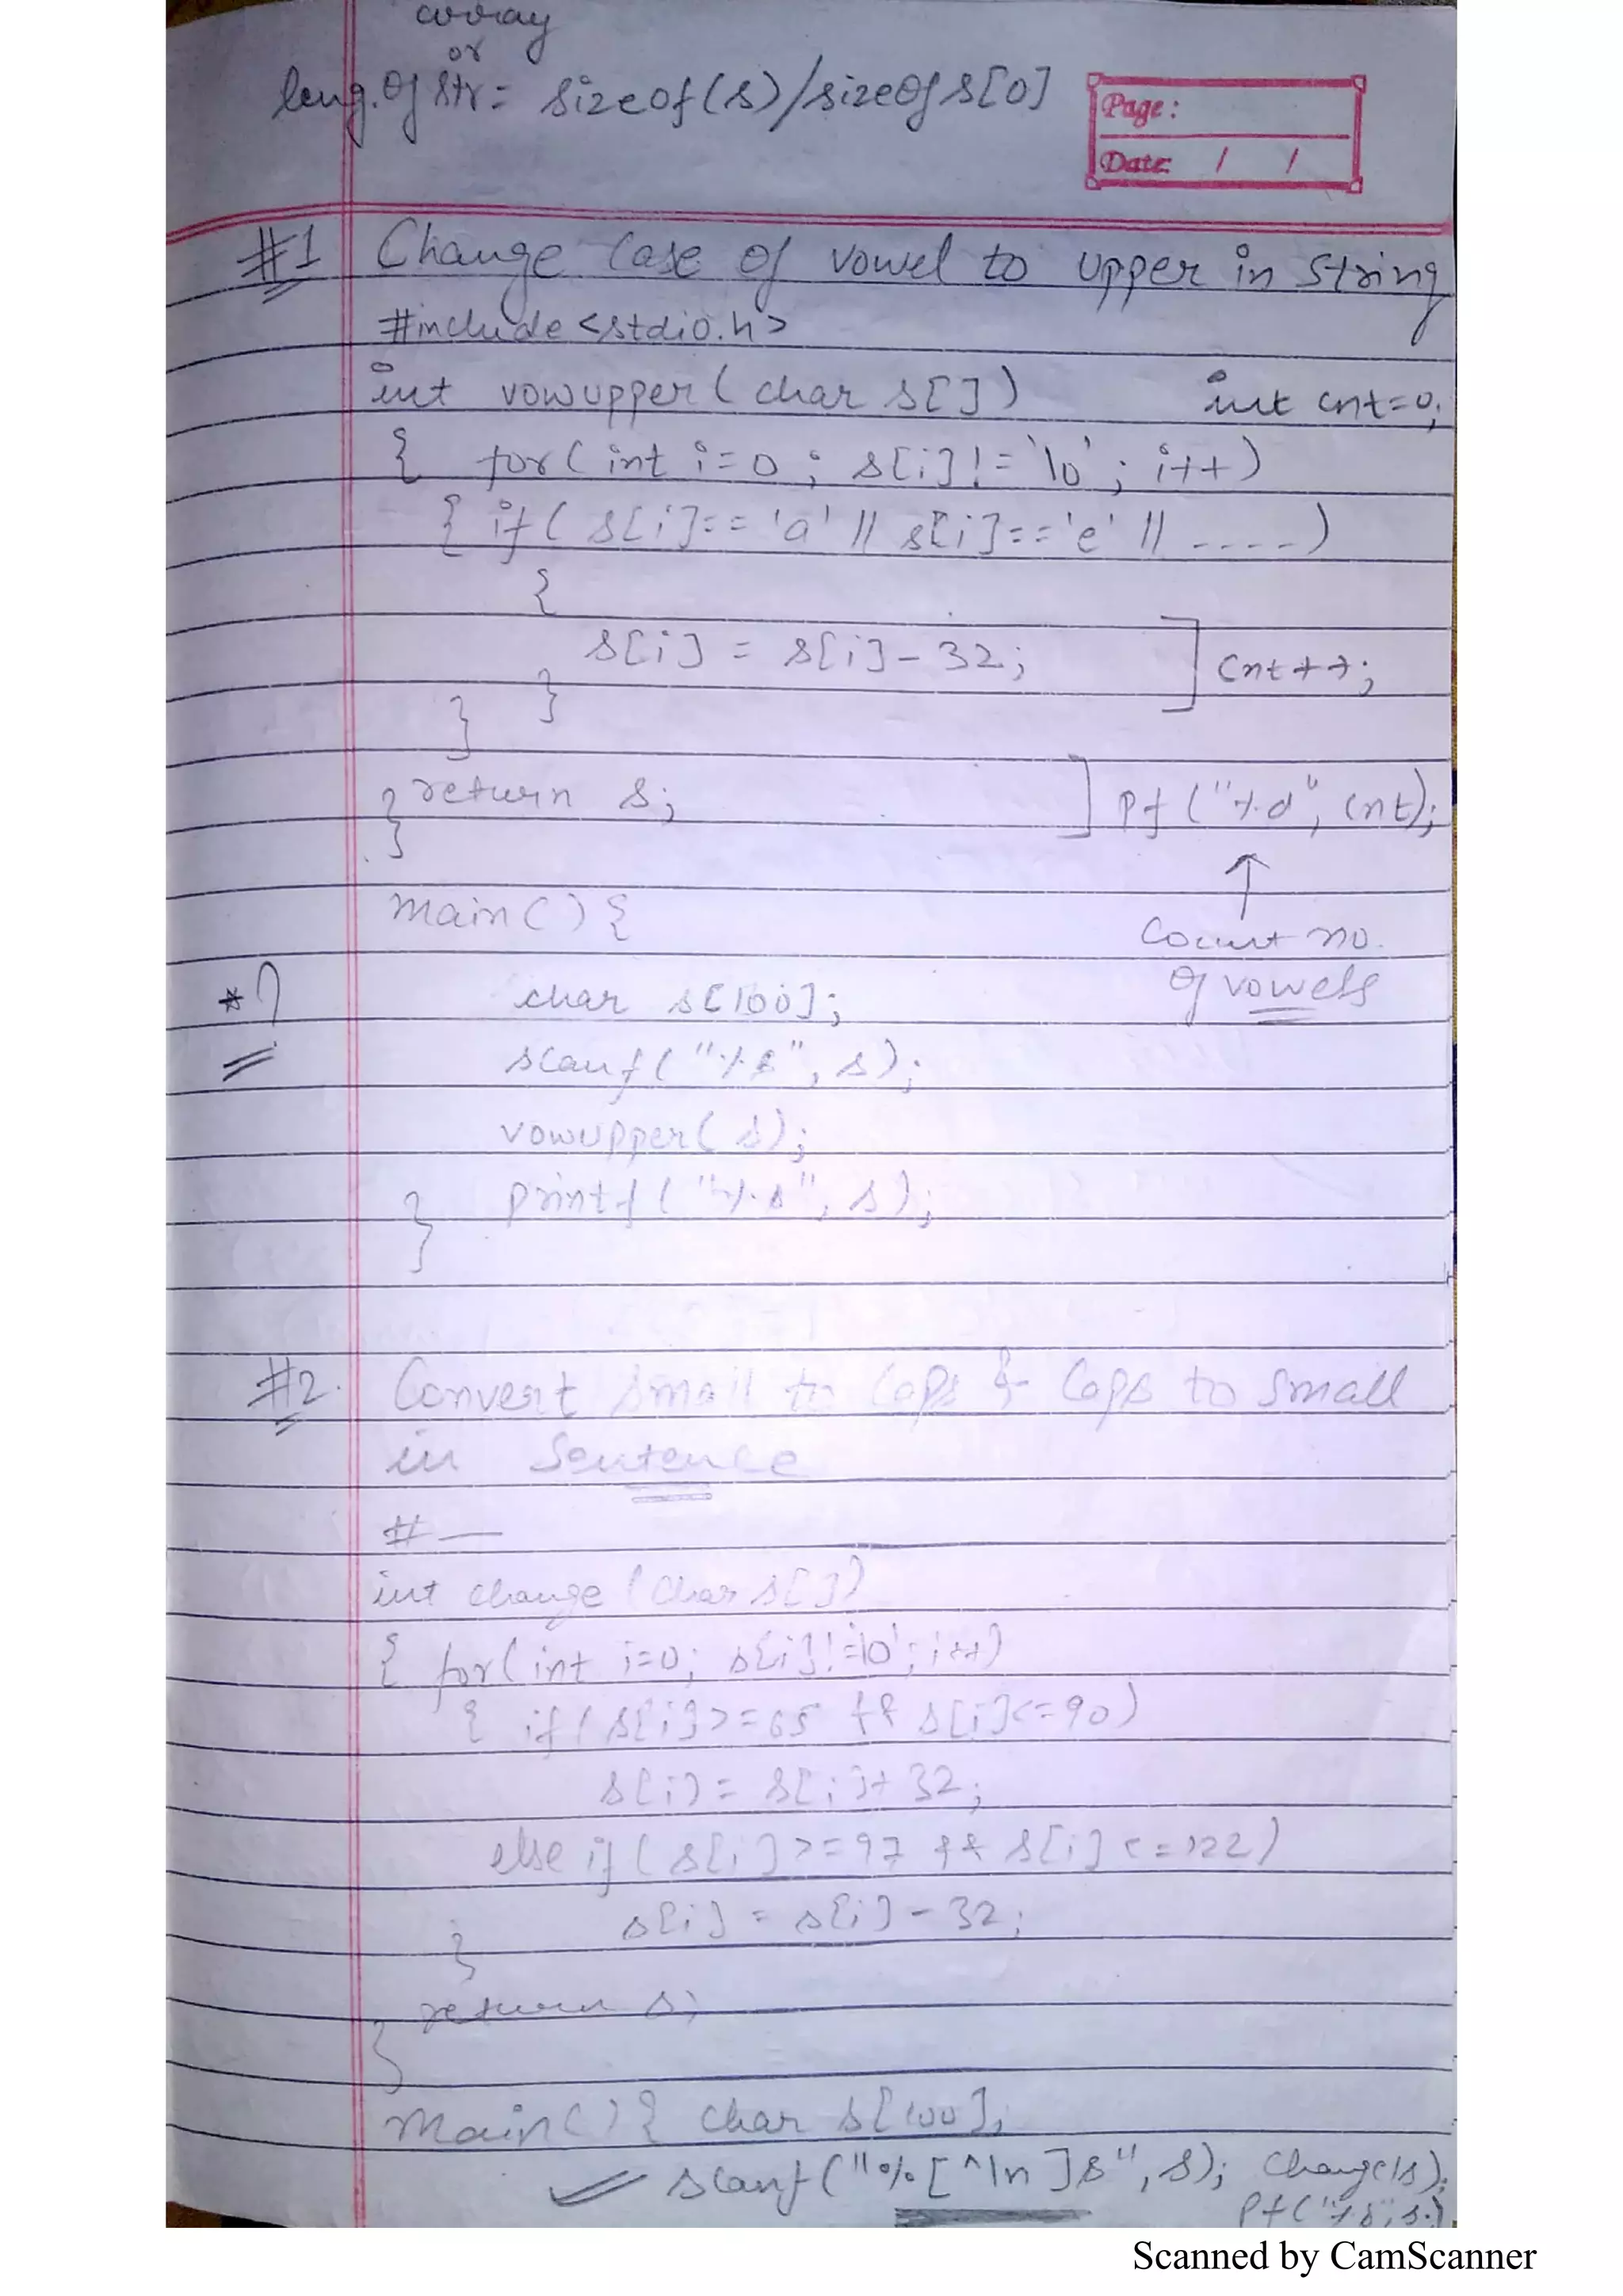 array
or
leng. of str = sizeof(s)/sizeof s[0]
Page:
Date: / /
#1 Change Case of vowel to upper in string
#include <stdio.h>
int vowupper( char s[]) int cnt=0;
{ for( int i=0 ; s[i]!= '\0' ; i++)
{ if( s[i]== 'a' || s[i]=='e' || ----)
{
s[i] = s[i]-32; ] cnt++;
}
}
return s; ] Pf ("%d", cnt);
}
↑
main() {
Count no.
of vowels
* char s[100];
scanf( "%s", s);
vowupper( s);
printf( "%s", s);
}
#2. Convert small to Caps & Caps to small
in Sentence
# —
int change (char s[])
{ for( int i=0; s[i]!='\0'; i++)
{ if( s[i]>=65 && s[i]<=90)
s[i] = s[i]+32;
else if( s[i]>=97 && s[i]<=122)
s[i] = s[i]-32;
}
return s;
}
main() { char s[100];
scanf("%[^\n]s", s); change(s);
Pf("%s", s);
Scanned by CamScanner